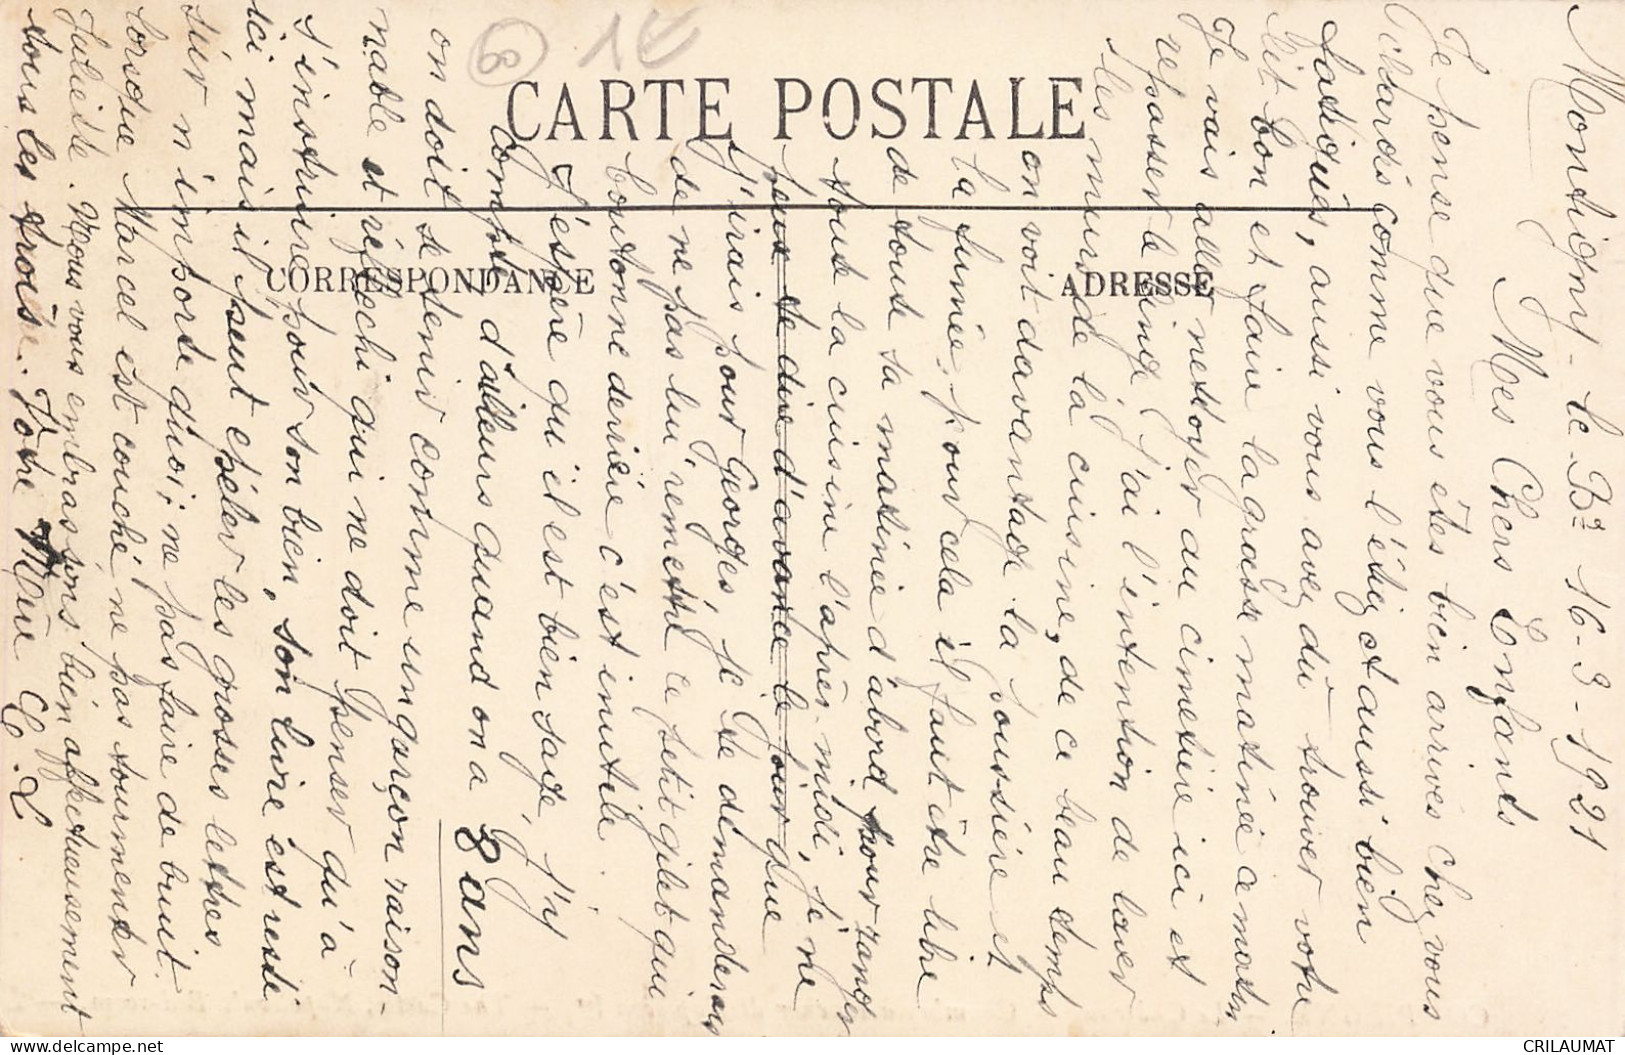 CARTE POSTALE
CORRESPONDANCE
ADRESSE
Montigny - le - Bx 16-3-1921
Mes Chers Enfants
Je pense que vous êtes bien arrivés chez vous
comme vous l'étiez et aussi bien
fatigués, aussi vous avez dû trouver votre
lit bon et faire la grasse matinée ce matin
Je vais aller nettoyer au cimetière ici et
repasser le linge j'ai l'intention de laver
les murs de la cuisine, de ce beau temps
on voit davantage la poussière et
la fumée, pour cela il faut être libre
de toute sa matinée d'abord pour ranger
toute la cuisine l'après-midi, je ne
peux te dire d'avance le jour que
j'irais pour Georges, je te demanderais
de ne pas lui remettre ce petit gilet qui
boutonne derrière c'est inutile.
J'espère qu'il est bien sage, j'y
compte d'ailleurs quand on a 8 ans
on doit se tenir comme un garçon raison
nable et réfléchi qui ne doit penser qu'à
s'instruire pour son bien, son livre est resté
ici mais il peut épéler les grosses lettres
sur n'importe quoi; ne pas faire de bruit
lorsque Marcel est couché, ne pas tourmenter
Juliette. Nous vous embrassons bien affectueusement
tous les trois. Votre Mère C. L
1E
CRILAUMAT